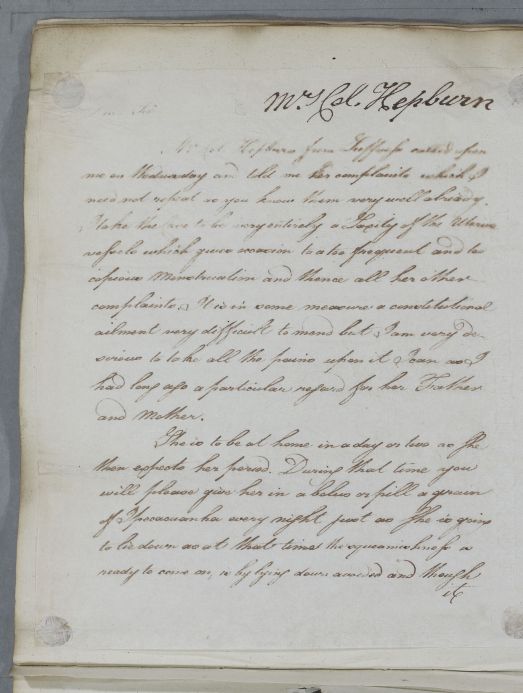 Mrs Col. Hepburn
Dear Sir
Mrs Col. Hepburn from called upon
me on Wedensday and told me her complaints which I
need not repeat as you know them very well already.
I take the to be very entirely a Laxity of the Uterine
vessels which gives occasion to a too frequent and too
copious Menstruation and thence all her other
complaints. It is in some measure a constitutional
ailment very difficult to mend but I am very de-
sirous to take all the pains upon it I can as I
had long ago a particular regard for her Father
and Mother.
She is to be at home in a day or two as She
then expects her period. During that time you
will please give her in a bolus or pill a grain
of Ipecacuanha every night just as She is going
to lie down as at that time the is
ready to come on, is by lying down avoided and though
it